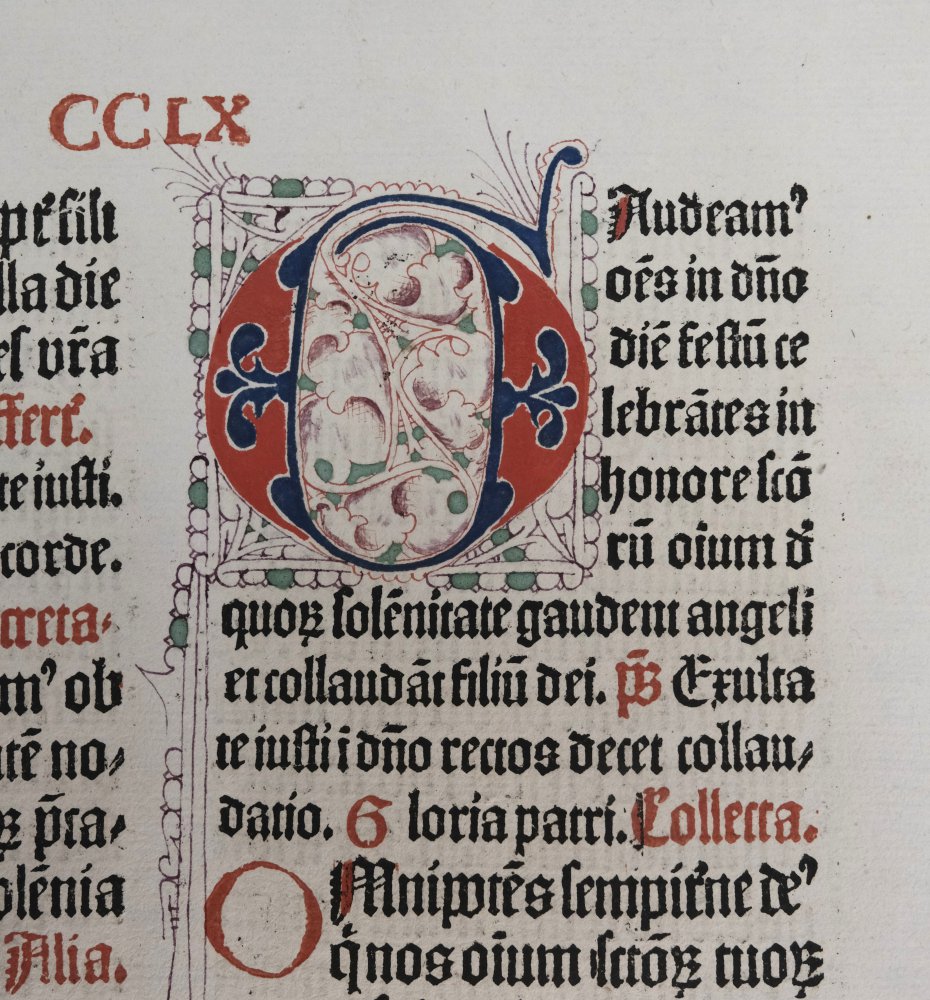 CCLX
ꝑt̃ fili
lla die
es vr̃a
ffert᷒.
te iusti.
corde.
creta⸗
mꝰ ob
utē no⸗
ꝝ p̄ta⸗
olēnia
Alia.
GAudeamꝰ
oēs in dño
diē festū ce
lebrātes in
honore scō
rū oīum d̓
quoꝝ solēnitate gaudent angeli
et collaudāt filiū dei. p̄s Exulta
te iusti ī dño rectos decet collau⸗
datio. Gloria patri. Collecta.
OMnipotēs sempit̓ne deꝰ
q̇ nos oīum sctōꝝ tuoꝝ